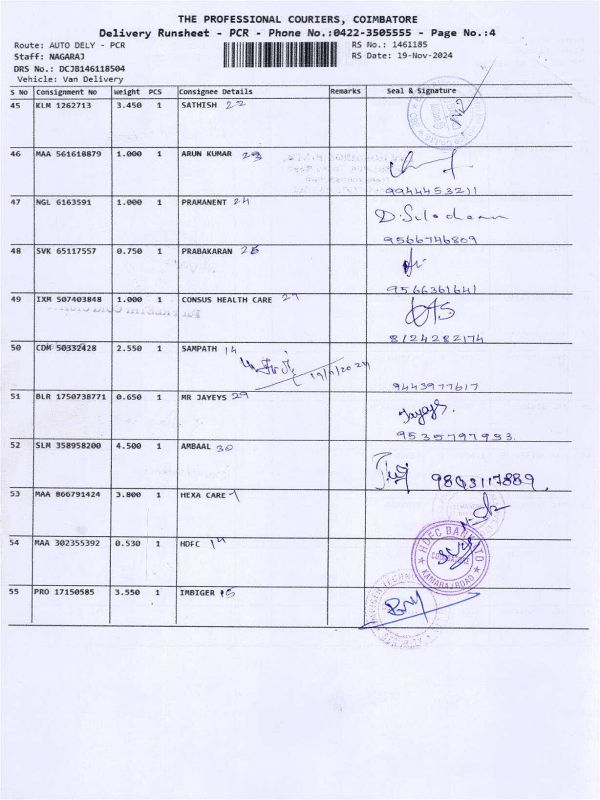 THE PROFESSIONAL COURIERS, COIMBATORE
Delivery Runsheet - PCR - Phone No.:0422-3505555 - Page No.:4
Route: AUTO DELY - PCR RS No.: 1461185
Staff: NAGARAJ RS Date: 19-Nov-2024
DRS No.: DCJB146118504
Vehicle: Van Delivery
S No Consignment No Weight PCS Consignee Details Remarks Seal & Signature
45 KLM 1262713 3.450 1 SATHISH 22
46 MAA 561618879 1.000 1 ARUN KUMAR 23
9944453211
47 NGL 6163591 1.000 1 PRAMANENT 24
9566746809
48 SVK 65117557 0.750 1 PRABAKARAN
9566361641
49 IXM 507403848 1.000 1 CONSUS HEALTH CARE 27
8124282174
50 CDM 50332428 2.550 1 SAMPATH 14
19/11/2024
9443977617
51 BLR 1750738771 0.650 1 MR JAYEYS 29
Jayeys.
9535797953.
52 SLM 358958200 4.500 1 AMBAAL 30
9803117889.
53 MAA 866791424 3.800 1 HEXA CARE
54 MAA 302355392 0.530 1 HDFC 14
HDFC BANK LTD
COIMBATORE
KAMARAJ ROAD
55 PRO 17150585 3.550 1 IMBIGER 15